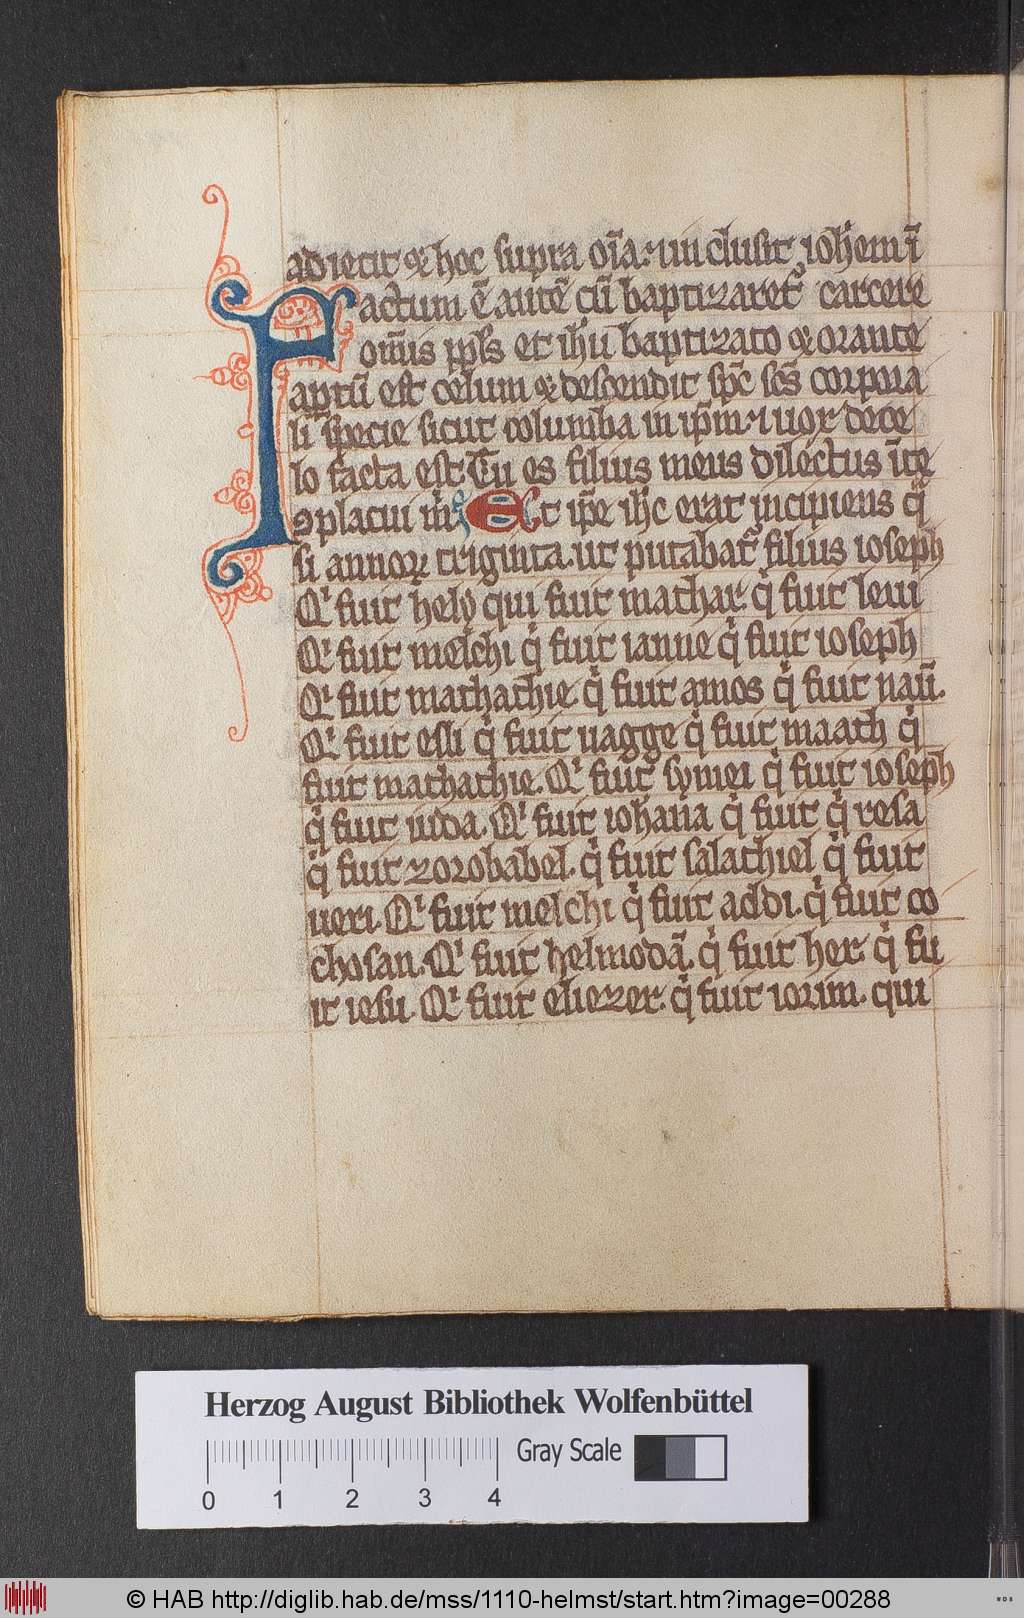 adiecit ⁊ hoc supra oīa. ⁊ inclusit ioh̄em ī
Factum ē autē cū baptizaretᷣ carcere
om̄is pp̄ls et ih̄u baptizato ⁊ orante
aptū est celum ⁊ descendit sp̄c sc̄s corpora
li sp̄ecie sicut columba in ip̄m. ⁊ uox de ce
lo facta est. Tu es filius meus dilectus ī te
ꝯplacui m̄. Et ip̄e ih̄c erat incipiens qͣ
si annoꝝ triginta. ut putabatᷣ filius ioseph
Qͥ fuit hely qui fuit mathat. qͥ fuit leui
Qͥ fuit melchi qͥ fuit ianne qͥ fuit ioseph
Qͥ fuit mathathie. qͥ fuit amos qͥ fuit naū.
Qͥ fuit esli qͥ fuit nagge qͥ fuit maath qͥ
fuit mathathie. Qͥ fuit symei qͥ fuit ioseph
qͥ fuit iuda. Qͥ fuit iohanna qͥ fuit qͥ resa
qͥ fuit zorobabel. qͥ fuit salathiel qͥ fuit
neri. Qͥ fuit melchi qͥ fuit addi. qͥ fuit co
chosan. Qͥ fuit helmodā. qͥ fuit her. qͥ fu
it iesu. Qͥ fuit eliezer. qͥ fuit iorim. qui
Herzog August Bibliothek Wolfenbüttel
Gray Scale
0 1 2 3 4
© HAB http://diglib.hab.de/mss/1110-helmst/start.htm?image=00288